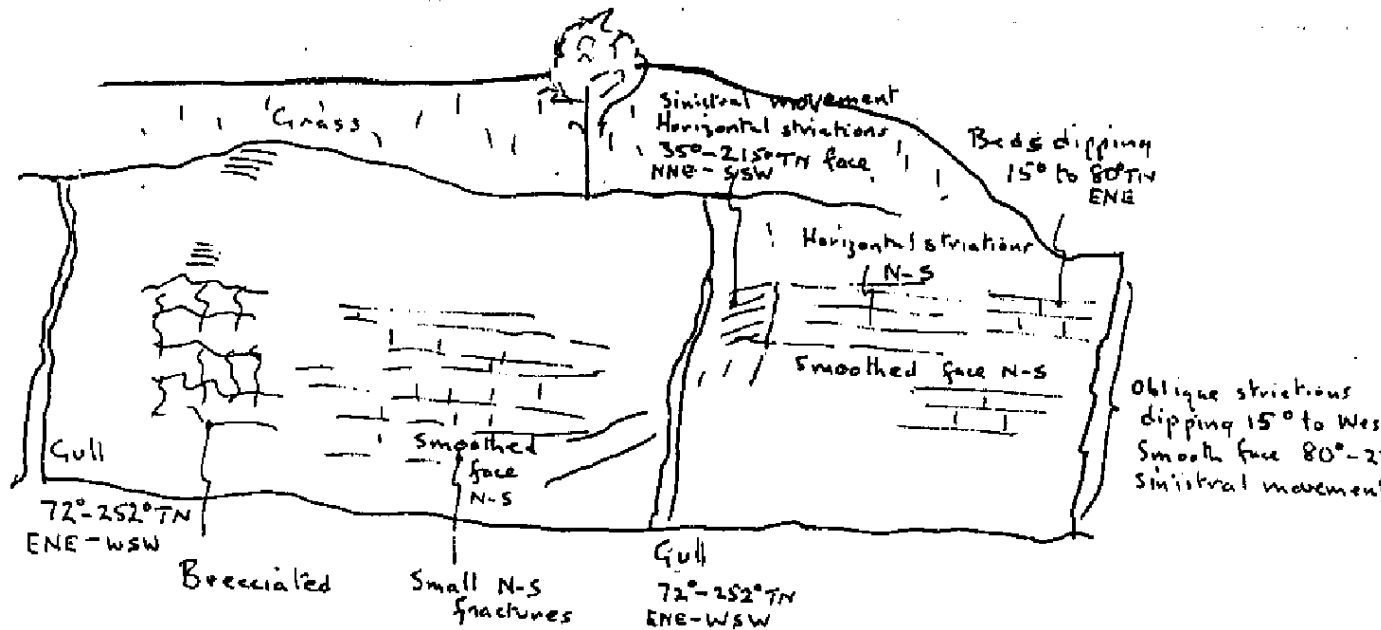 Grass
Sinistral movement
Horizontal striations
35°-215°TN face
NNE-SSW
Beds dipping
15° to 80°TN
ENE
Horizontal striations
N-S
Smoothed face N-S
Oblique striations
dipping 15° to Wes
Smooth face 80°-2
Sinistral movement
Smoothed
face
N-S
Gull
72°-252°TN
ENE-WSW
Brecciated
Small N-S
fractures
Gull
72°-252°TN
ENE-WSW